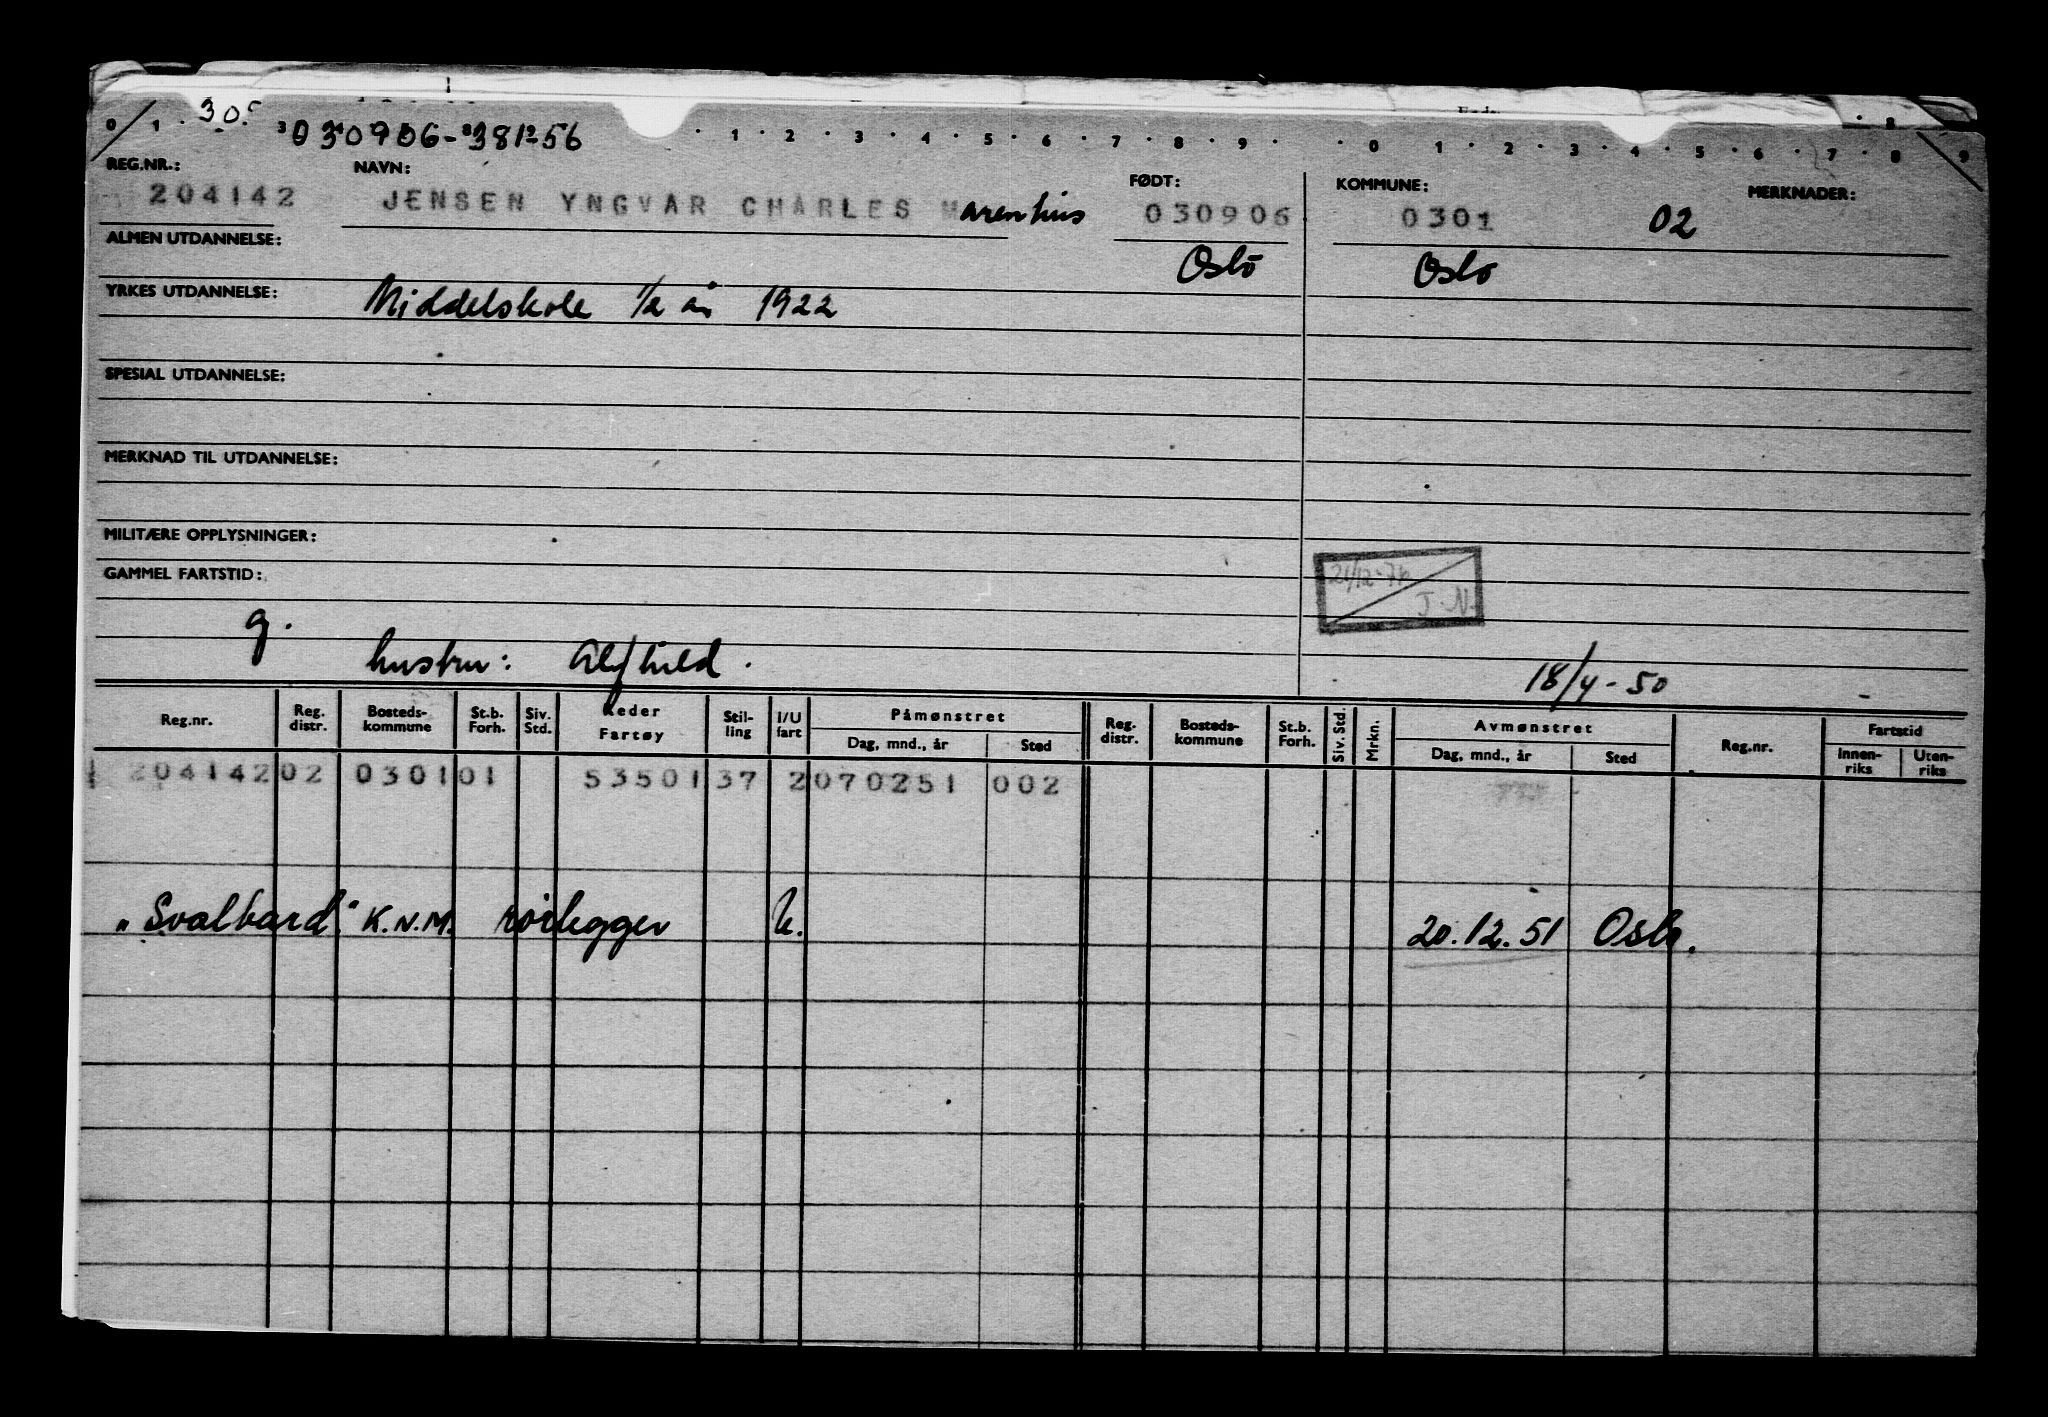 0 1 30
030906-38156
1 2 3 4 5 6 7 8 9 0 1 2 3 4 5 6 7 8 9
REG.NR.: NAVN: FØDT: KOMMUNE: MERKNADER:
204142 JENSEN YNGVAR CHARLES Marenhius 030906 0301 02
ALMEN UTDANNELSE: Oslo Oslo
YRKES UTDANNELSE: Middelskole 1/2 år 1922
SPESIAL UTDANNELSE:
MERKNAD TIL UTDANNELSE:
MILITÆRE OPPLYSNINGER:
GAMMEL FARTSTID:
J.N.
g.
hustru: Alfhild.
18/4-50
Reg.nr. Reg. distr. Bosteds-kommune St.b. Forh. Siv. Std. Reder Fartøy Stil-ling I/U fart Påmønstret Dag, mnd., år Sted Reg. distr. Bosteds-kommune St.b. Forh. Siv. Std. Mrkn. Avmønstret Dag, mnd., år Sted Reg.nr. Fartstid Innen-riks Uten-riks
204142 02 0301 01 53501 37 2 070251 002
"Svalbard" K.N.M. rörlegger U. 20.12.51 Oslo.